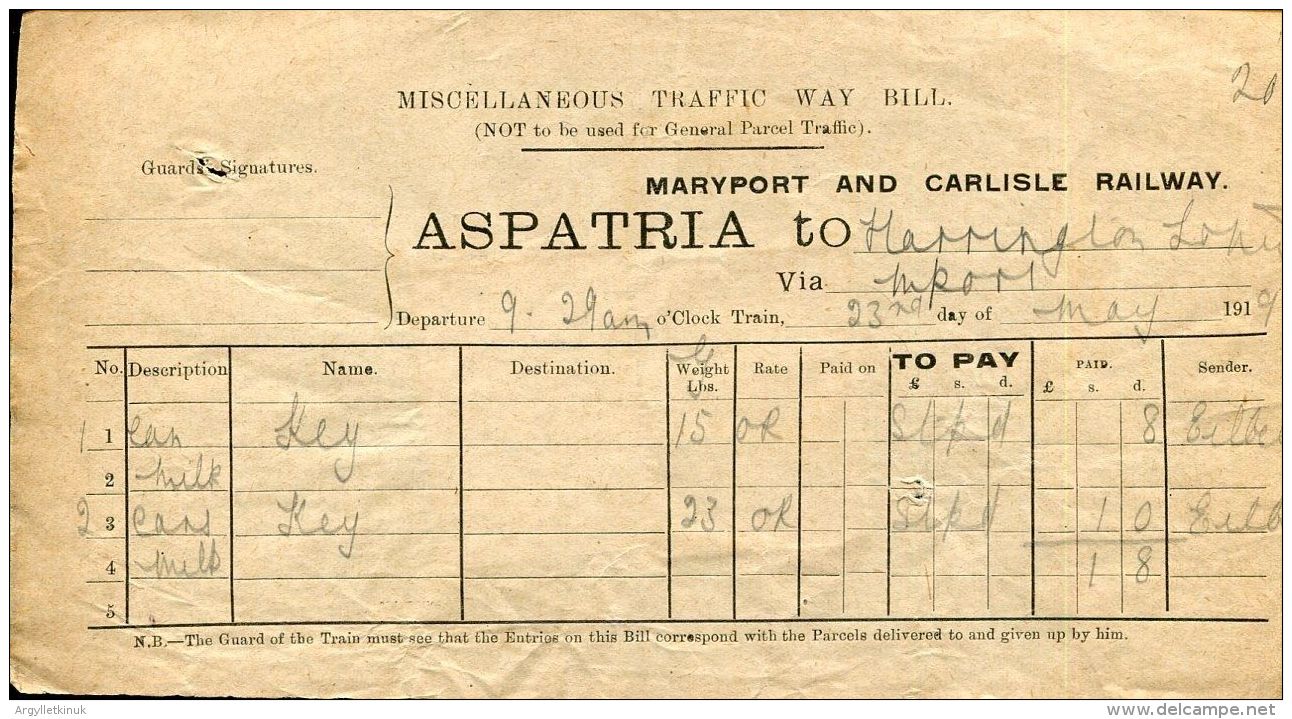 20
MISCELLANEOUS TRAFFIC WAY BILL.
(NOT to be used for General Parcel Traffic).
Guards' Signatures.
MARYPORT AND CARLISLE RAILWAY.
ASPATRIA to Harrington
Via Mport
Departure 9.29am o'Clock Train, 23rd day of May 1919
No. Description Name. Destination. Weight Lbs. Rate Paid on TO PAY £ s. d. PAID. £ s. d. Sender.
1 1 Can Key 15 OR Stpd 8
2 Milk
2 3 Cans Key 23 OR Stpd 1 0
4 Milk 1 8
5
N.B.—The Guard of the Train must see that the Entries on this Bill correspond with the Parcels delivered to and given up by him.
Argylletkinuk
www.delcampe.net